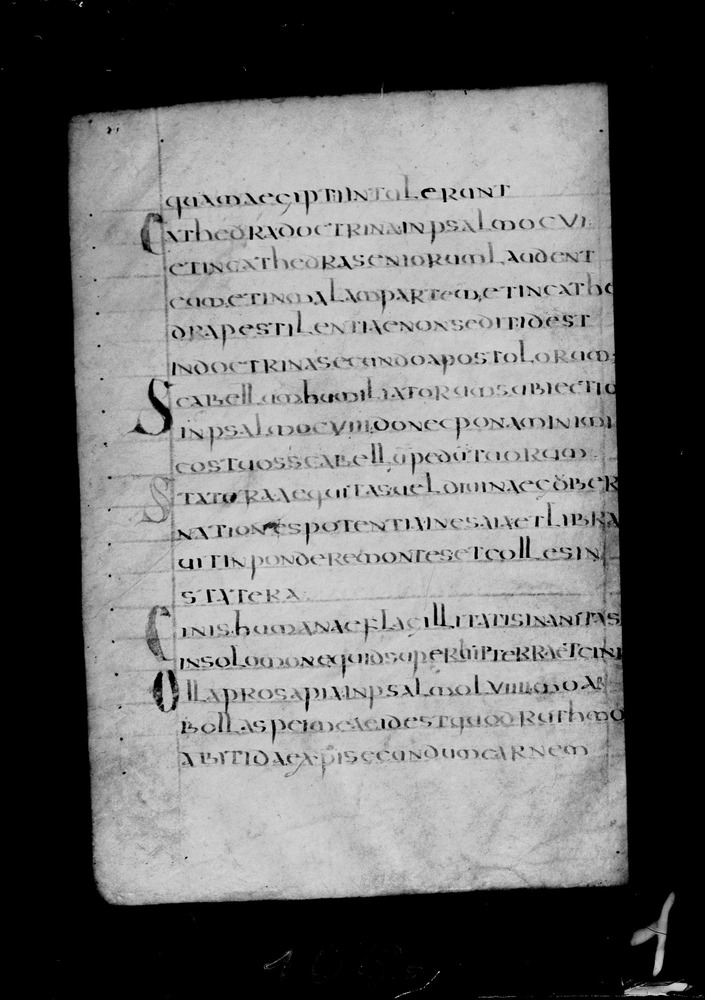 quam aegiptii intulerunt
Cathedra doctrina in psalmo CVI
et in cathedra seniorum laudent
eum et in malam partem, et in cathe
dra pestilentiae non sedit id est
in doctrina secundo apostolorum
Scabellum humiliatorum subiectio
in psalmo CVIIII donec ponam inimi
cos tuos scabellū pedū tuorum
Statura aequitas uel diuinae gūber
nationes potentia in esaia et libra
uit in pondere montes et colles in
statera
Cinis humanae flagillitatis inanitas
in solomone quid superbit terra et cini
Olla prosapia in psalmo LVIIII moab
bolla spei meae id est quod ruth mo
abitidae xpi secundum carnem